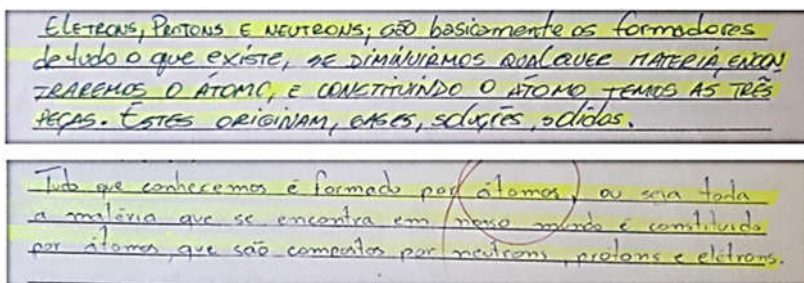 ELETRONS, PROTONS E NEUTRONS; são basicamente os formadores
de tudo o que existe, SE DIMINUIRMOS QUALQUER MATERIA, ENCON
TRAREMOS O ÁTOMO, E CONSTITUINDO O ÁTOMO TEMOS AS TRÊS
PEÇAS. ESTES ORIGINAM, GASES, soluções, sólidas.
Tudo que conhecemos é formado por átomos, ou seja toda
a matéria que se encontra em nosso mundo é constituido
por átomos, que são compostos por neutrons, protons e elétrons.